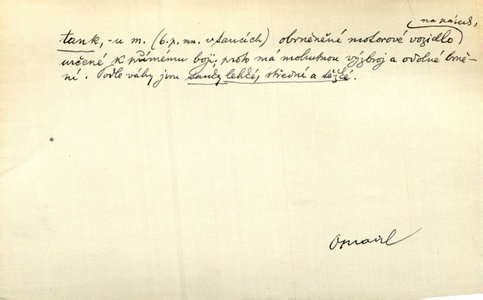 na pásech,
tank, -u m. (6. p. mn. v tancích) obrněněné motorové vozidlo
určené k přímému boji, proto má mohutnou výzbroj a odolné brně-
ní. Podle váhy jsou tanky lehké, střední a těžké.